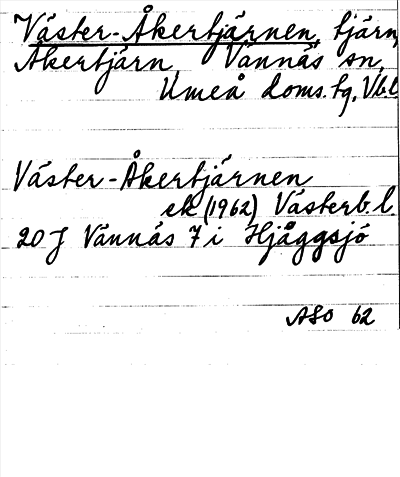 Väster-Åkertjärnen, tjärn,
Åkertjärn, Vännäs sn,
Umeå doms. tg, Vbl
Väster-Åkertjärnen
ek (1962) Västerb. l.
20 J Vännäs 7 i Hjåggsjö
ASO 62